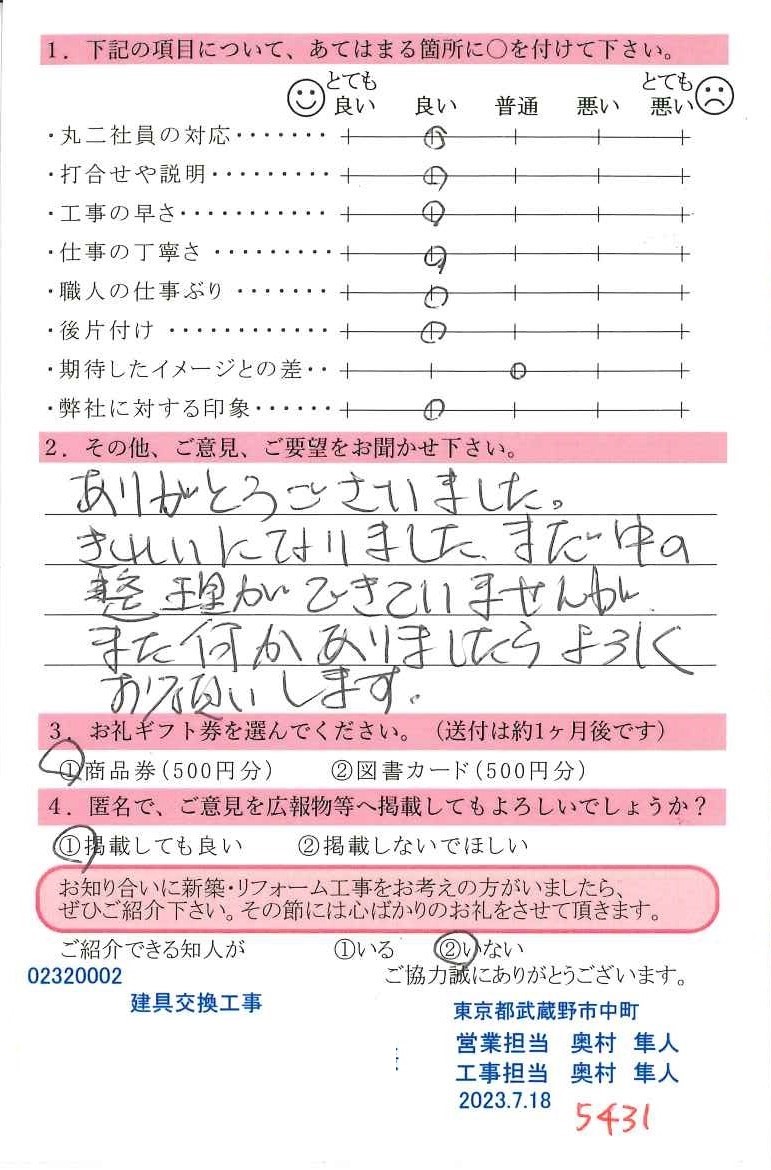 1．下記の項目について、あてはまる箇所に○を付けて下さい。
とても良い 良い 普通 悪い とても悪い
・丸二社員の対応・・・・・・・
・打合せや説明・・・・・・・・・
・工事の早さ・・・・・・・・・・・
・仕事の丁寧さ ・・・・・・・・・
・職人の仕事ぶり ・・・・・・・
・後片付け ・・・・・・・・・・・・
・期待したイメージとの差・・
・弊社に対する印象・・・・・・
2．その他、ご意見、ご要望をお聞かせ下さい。
ありがとうございました。
きれいになりました。まだ中の
整理ができていませんが
また何かありましたらよろしく
お願いします。
3．お礼ギフト券を選んでください。（送付は約1ヶ月後です）
①商品券（500円分） ②図書カード（500円分）
4．匿名で、ご意見を広報物等へ掲載してもよろしいでしょうか？
①掲載しても良い ②掲載しないでほしい
お知り合いに新築・リフォーム工事をお考えの方がいましたら、
ぜひご紹介下さい。その節には心ばかりのお礼をさせて頂きます。
ご紹介できる知人が ①いる ②いない
ご協力誠にありがとうございます。
02320002
建具交換工事
東京都武蔵野市中町
営業担当 奥村 隼人
工事担当 奥村 隼人
2023.7.18
5431